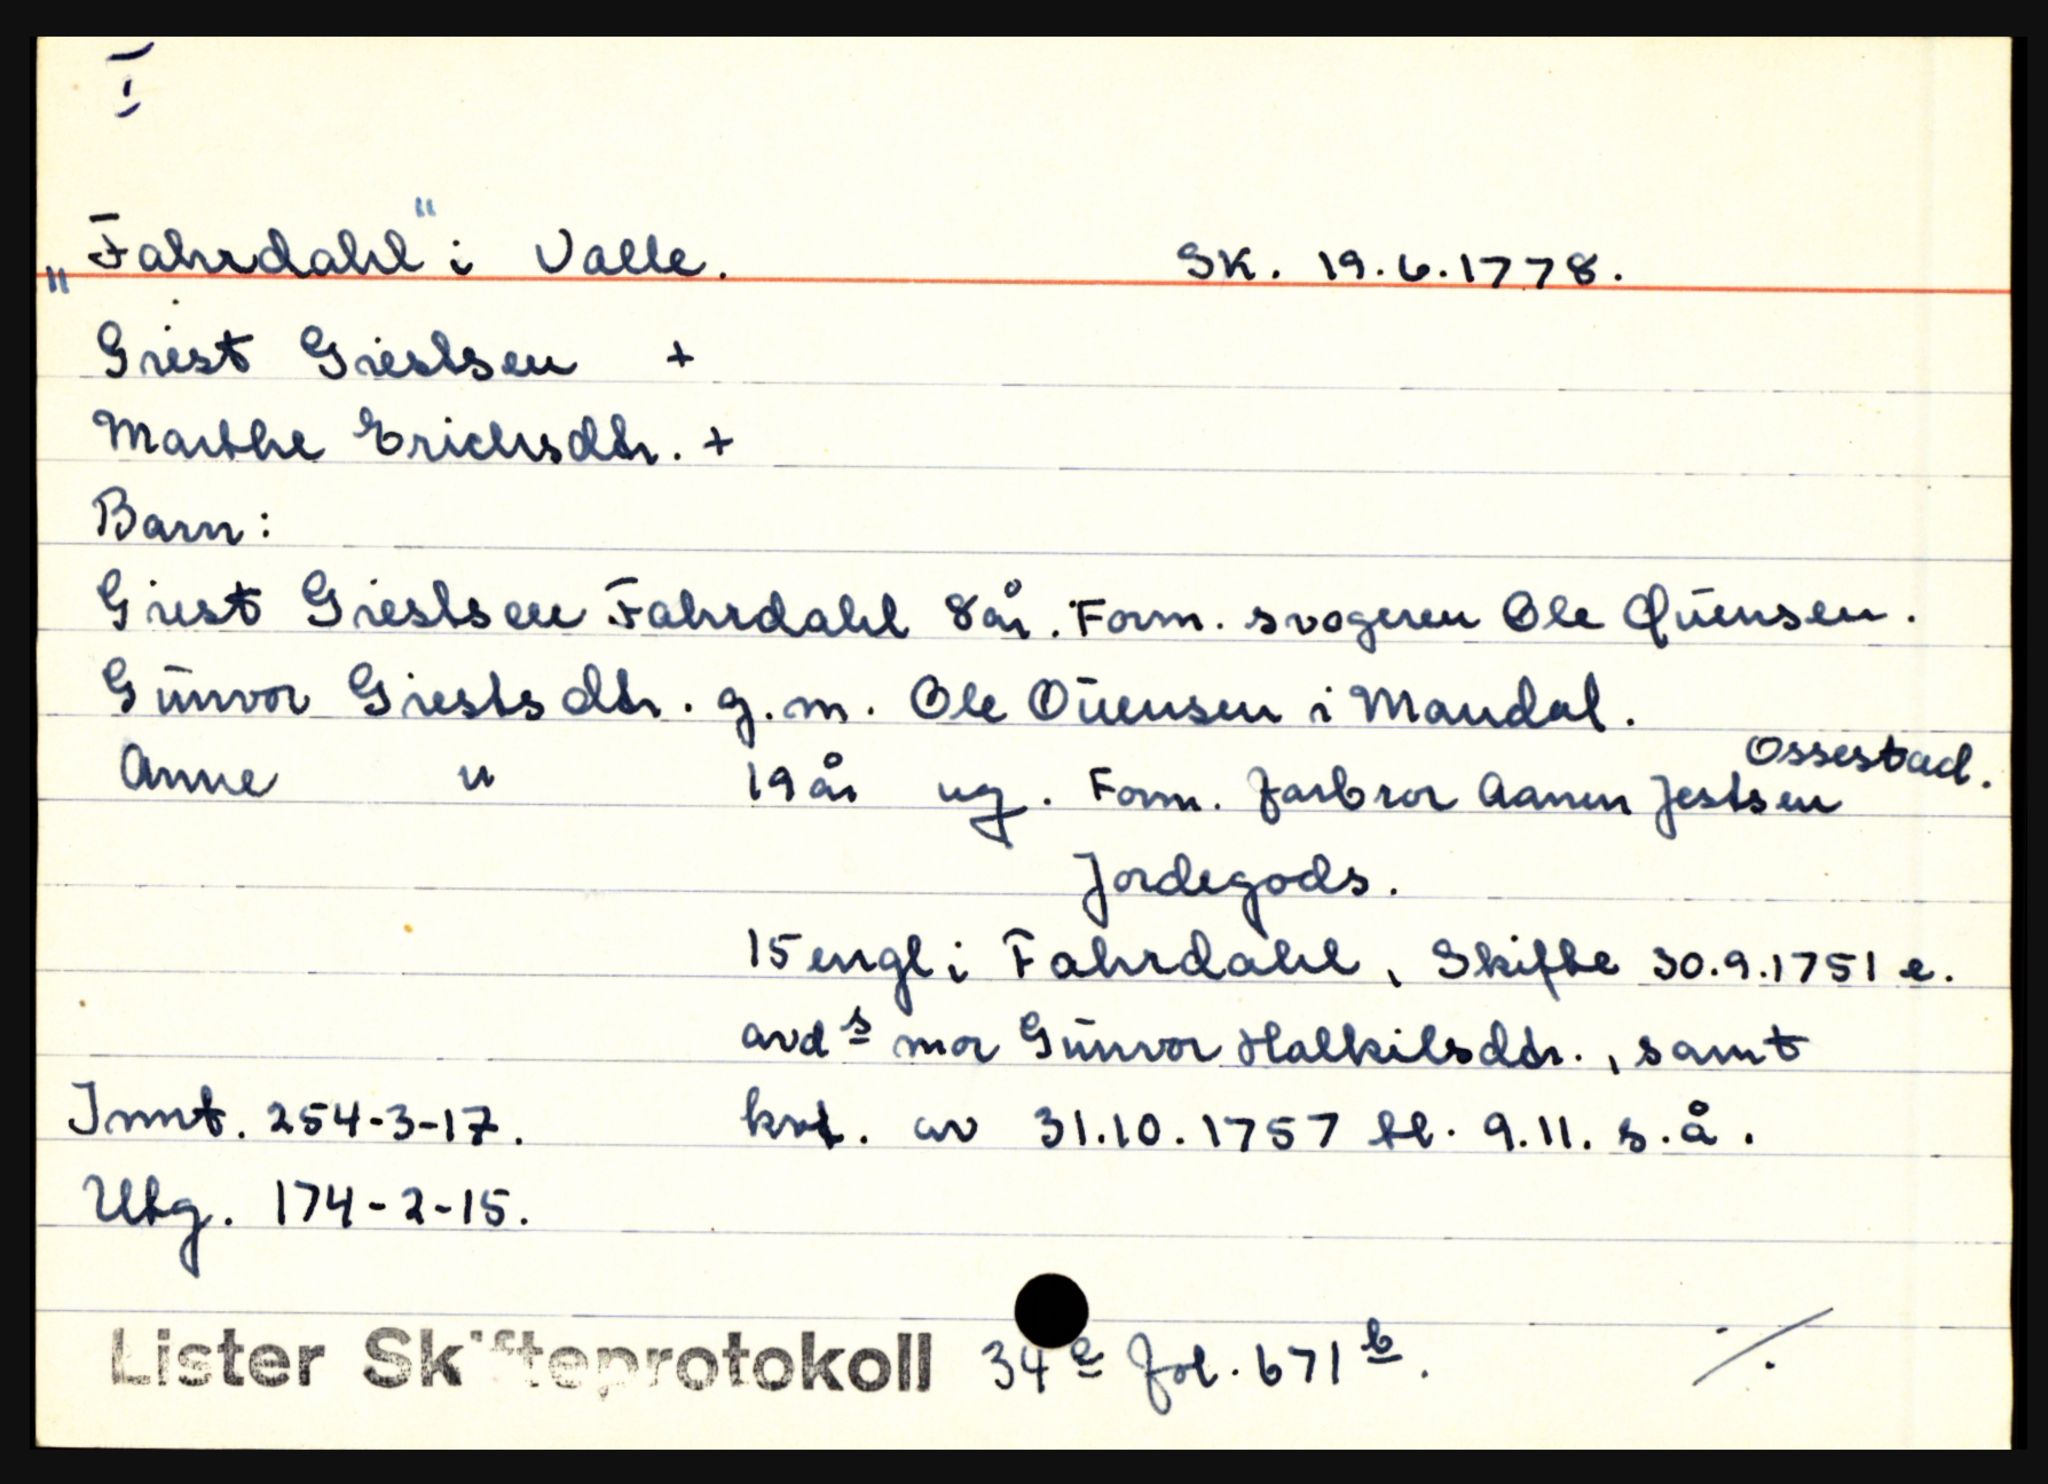 I
"Fahrdahl" i Valle. Sk. 19.6.1778.
Giest Giestsen +
Marthe Erichsdtr. +
Barn:
Giest Giestsen Fahrdahl 8 år. Form. svogeren Ole Ouensen.
Gunvor Giestsdtr. g.m. Ole Ouensen i Mandal.
Anne " 19 år ug. Form. farbror Aanen Jestsen Ossestad.
Jordegods.
15 engl i Fahrdahl, Skifte 30.9.1751 e.
avds mor Gunvor Halkilsdtr., samt
Innt. 254-3-17. kvt. av 31.10.1757 tl. 9.11. s.å.
Utg. 174-2-15.
Lister Skifteprotokoll 34 c fol. 671 b.